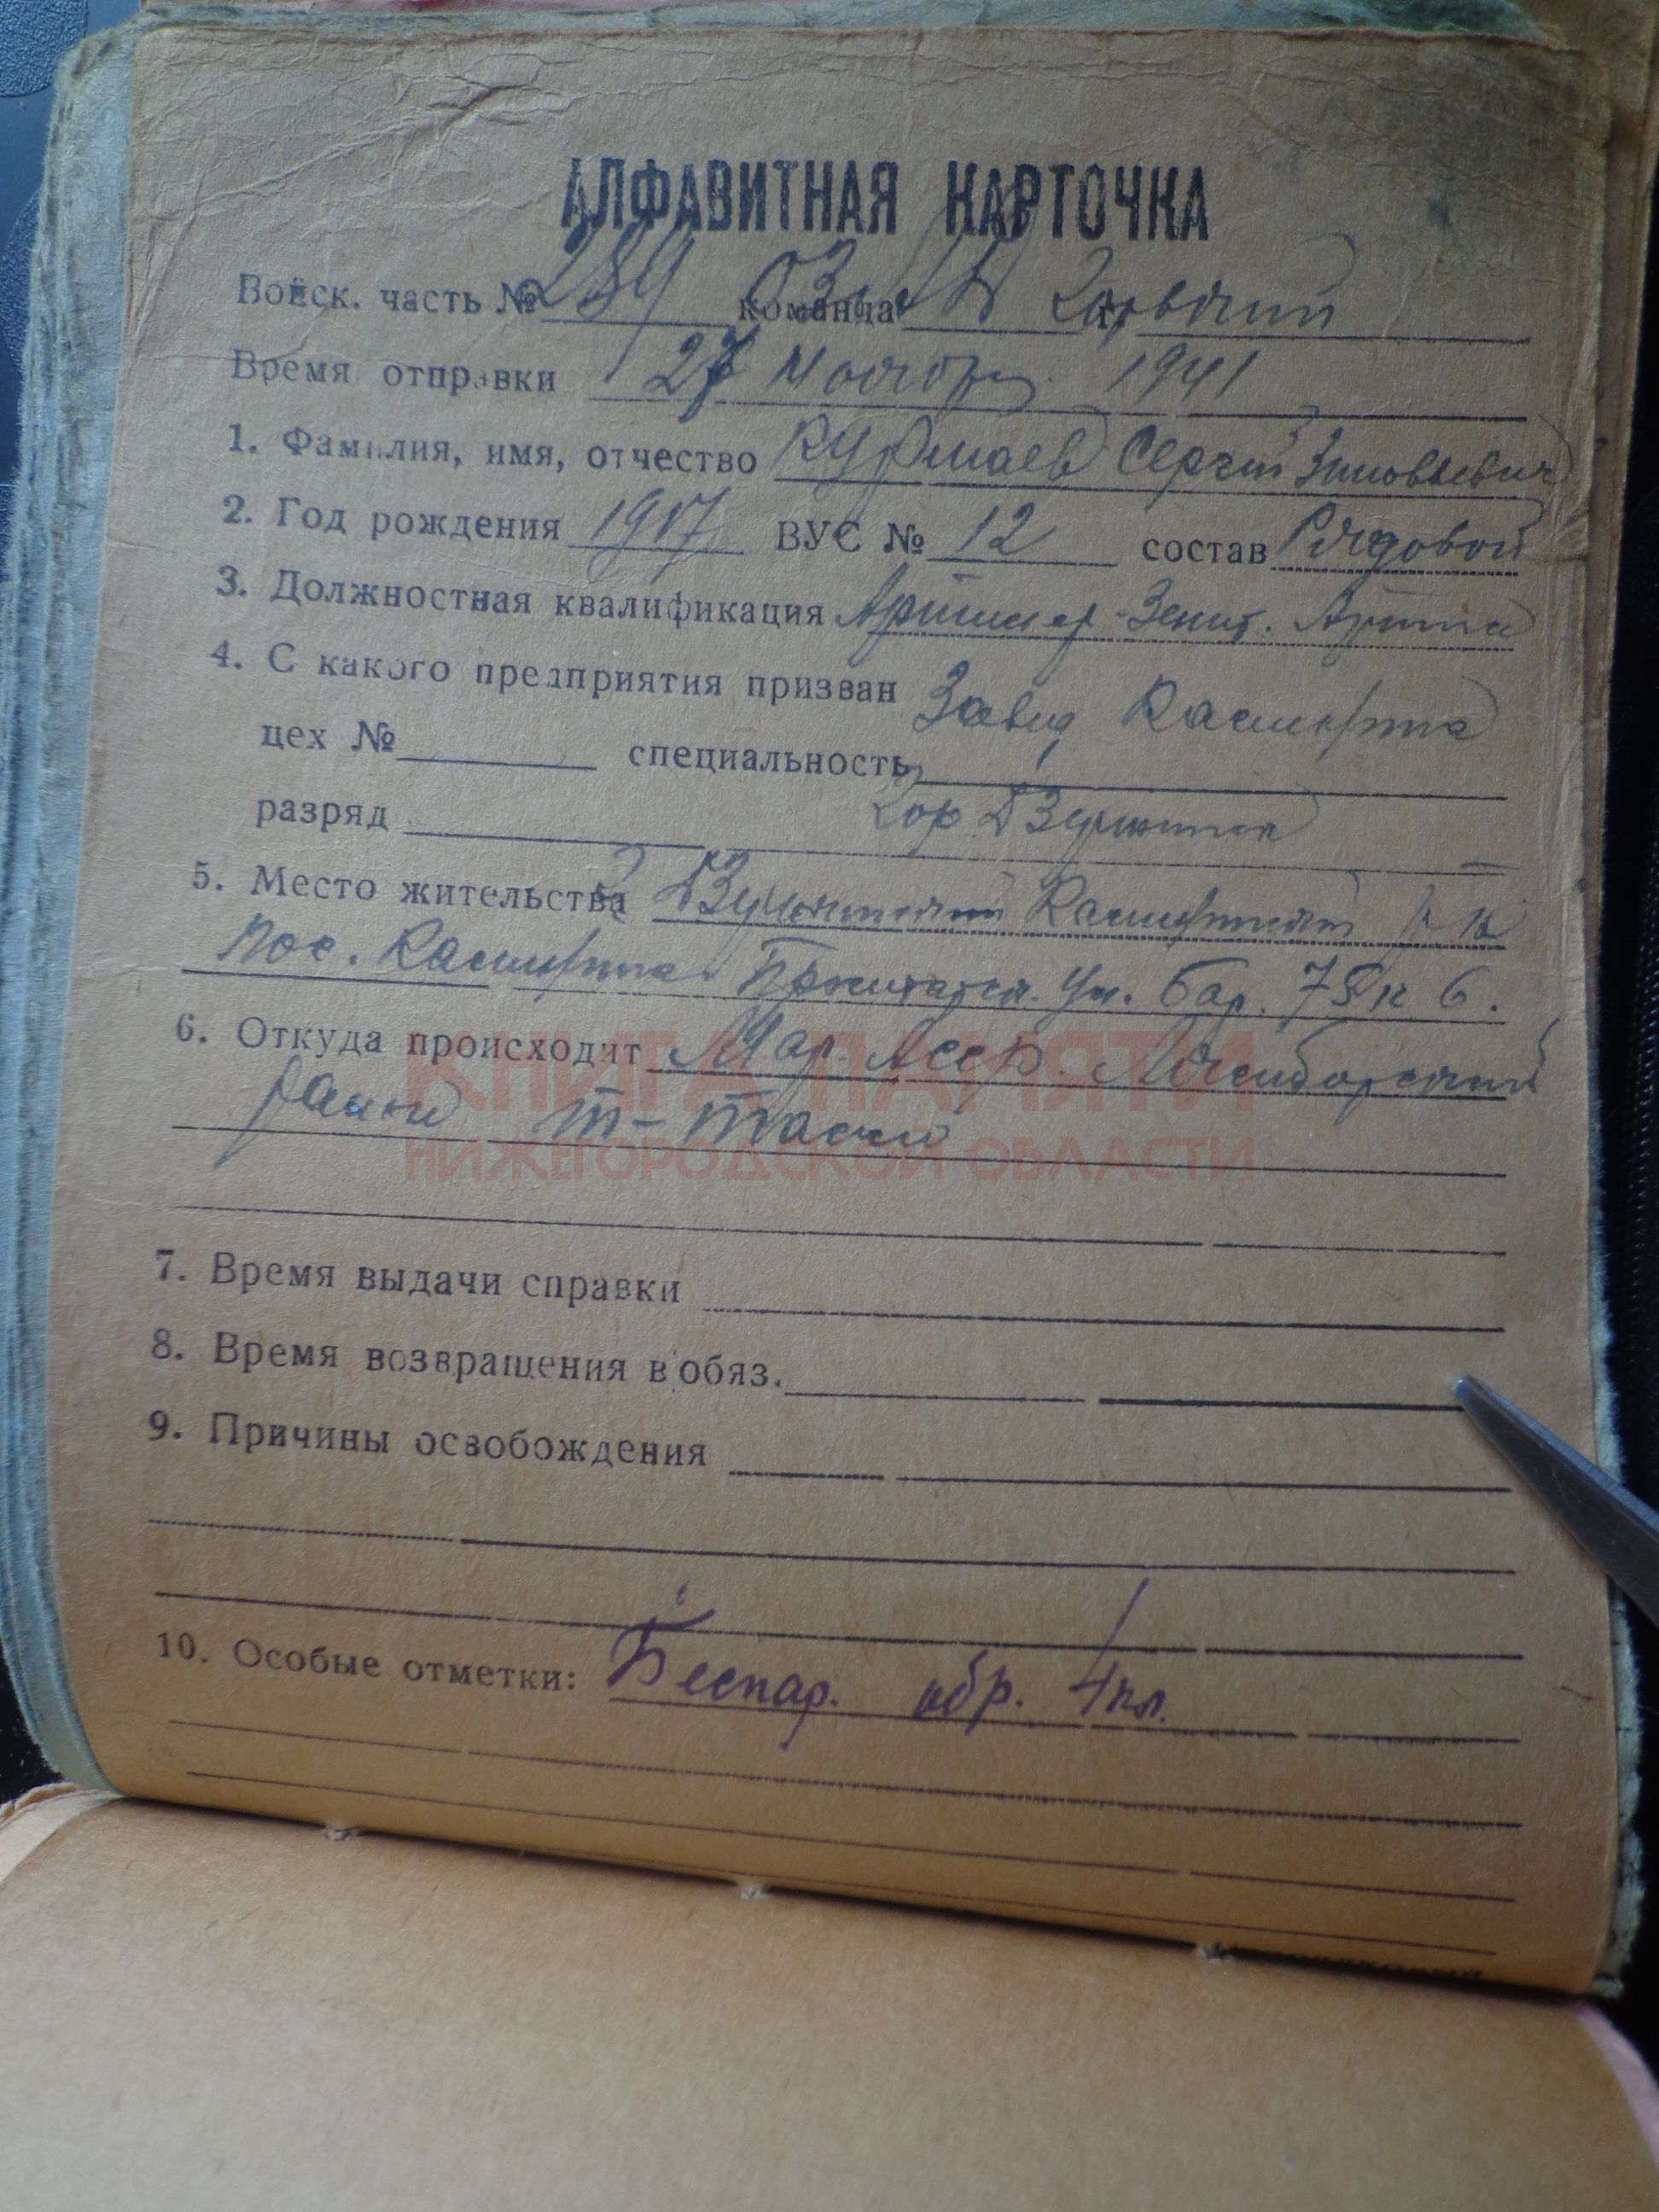 АЛФАВИТНАЯ КАРТОЧКА
Войск. часть № 289 команда
Время отправки 27 1941
1. Фамилия, имя, отчество Курмаев Сергей Зиновьевич
2. Год рождения 1917 ВУС № 12 состав Рядовой
3. Должностная квалификация Зенит.
4. С какого предприятия призван Завод
цех № специальность
разряд Гор Дзержинск
5. Место жительства р-н
пос. Пролетарск. ул. Бар. 75 к 6.
6. Откуда происходит Мар. АССР.
район
КНИГА ПАМЯТИ
НИЖЕГОРОДСКОЙ ОБЛАСТИ
7. Время выдачи справки
8. Время возвращения в обяз.
9. Причины освобождения
10. Особые отметки: Беспар. обр. 4 кл.